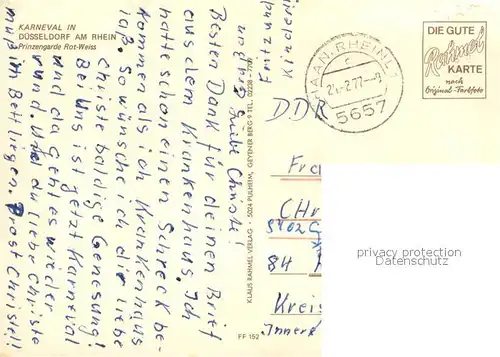 KARNEVAL IN
DÜSSELDORF AM RHEIN
Prinzengarde Rot-Weiss
Liebe Christel!
Besten Dank für deinen Brief
aus dem Krankenhaus. Ich
hatte schon einen Schreck be-
kommen als ich Krankenhaus
laß. So wünsche ich dir liebe
Christe baldige Genesung!
Bei Uns ist jetzt Karneval
und da geht es wieder
rund. Und du liebe Christe
muß im Bett liegen. Prost Christel!!
KLAUS RAHMEL VERLAG - 5024 PULHEIM, GEYENER BERG 9 TEL. 02238-7709
FF 152
HAAN, RHEINL 1
c
21.-2.77-
5657
DIE GUTE
Rahmel
KARTE
nach
Original-Farbfoto
DDR
Fra
CHr
5902
84
Kreis
Innere
privacy protection
Datenschutz